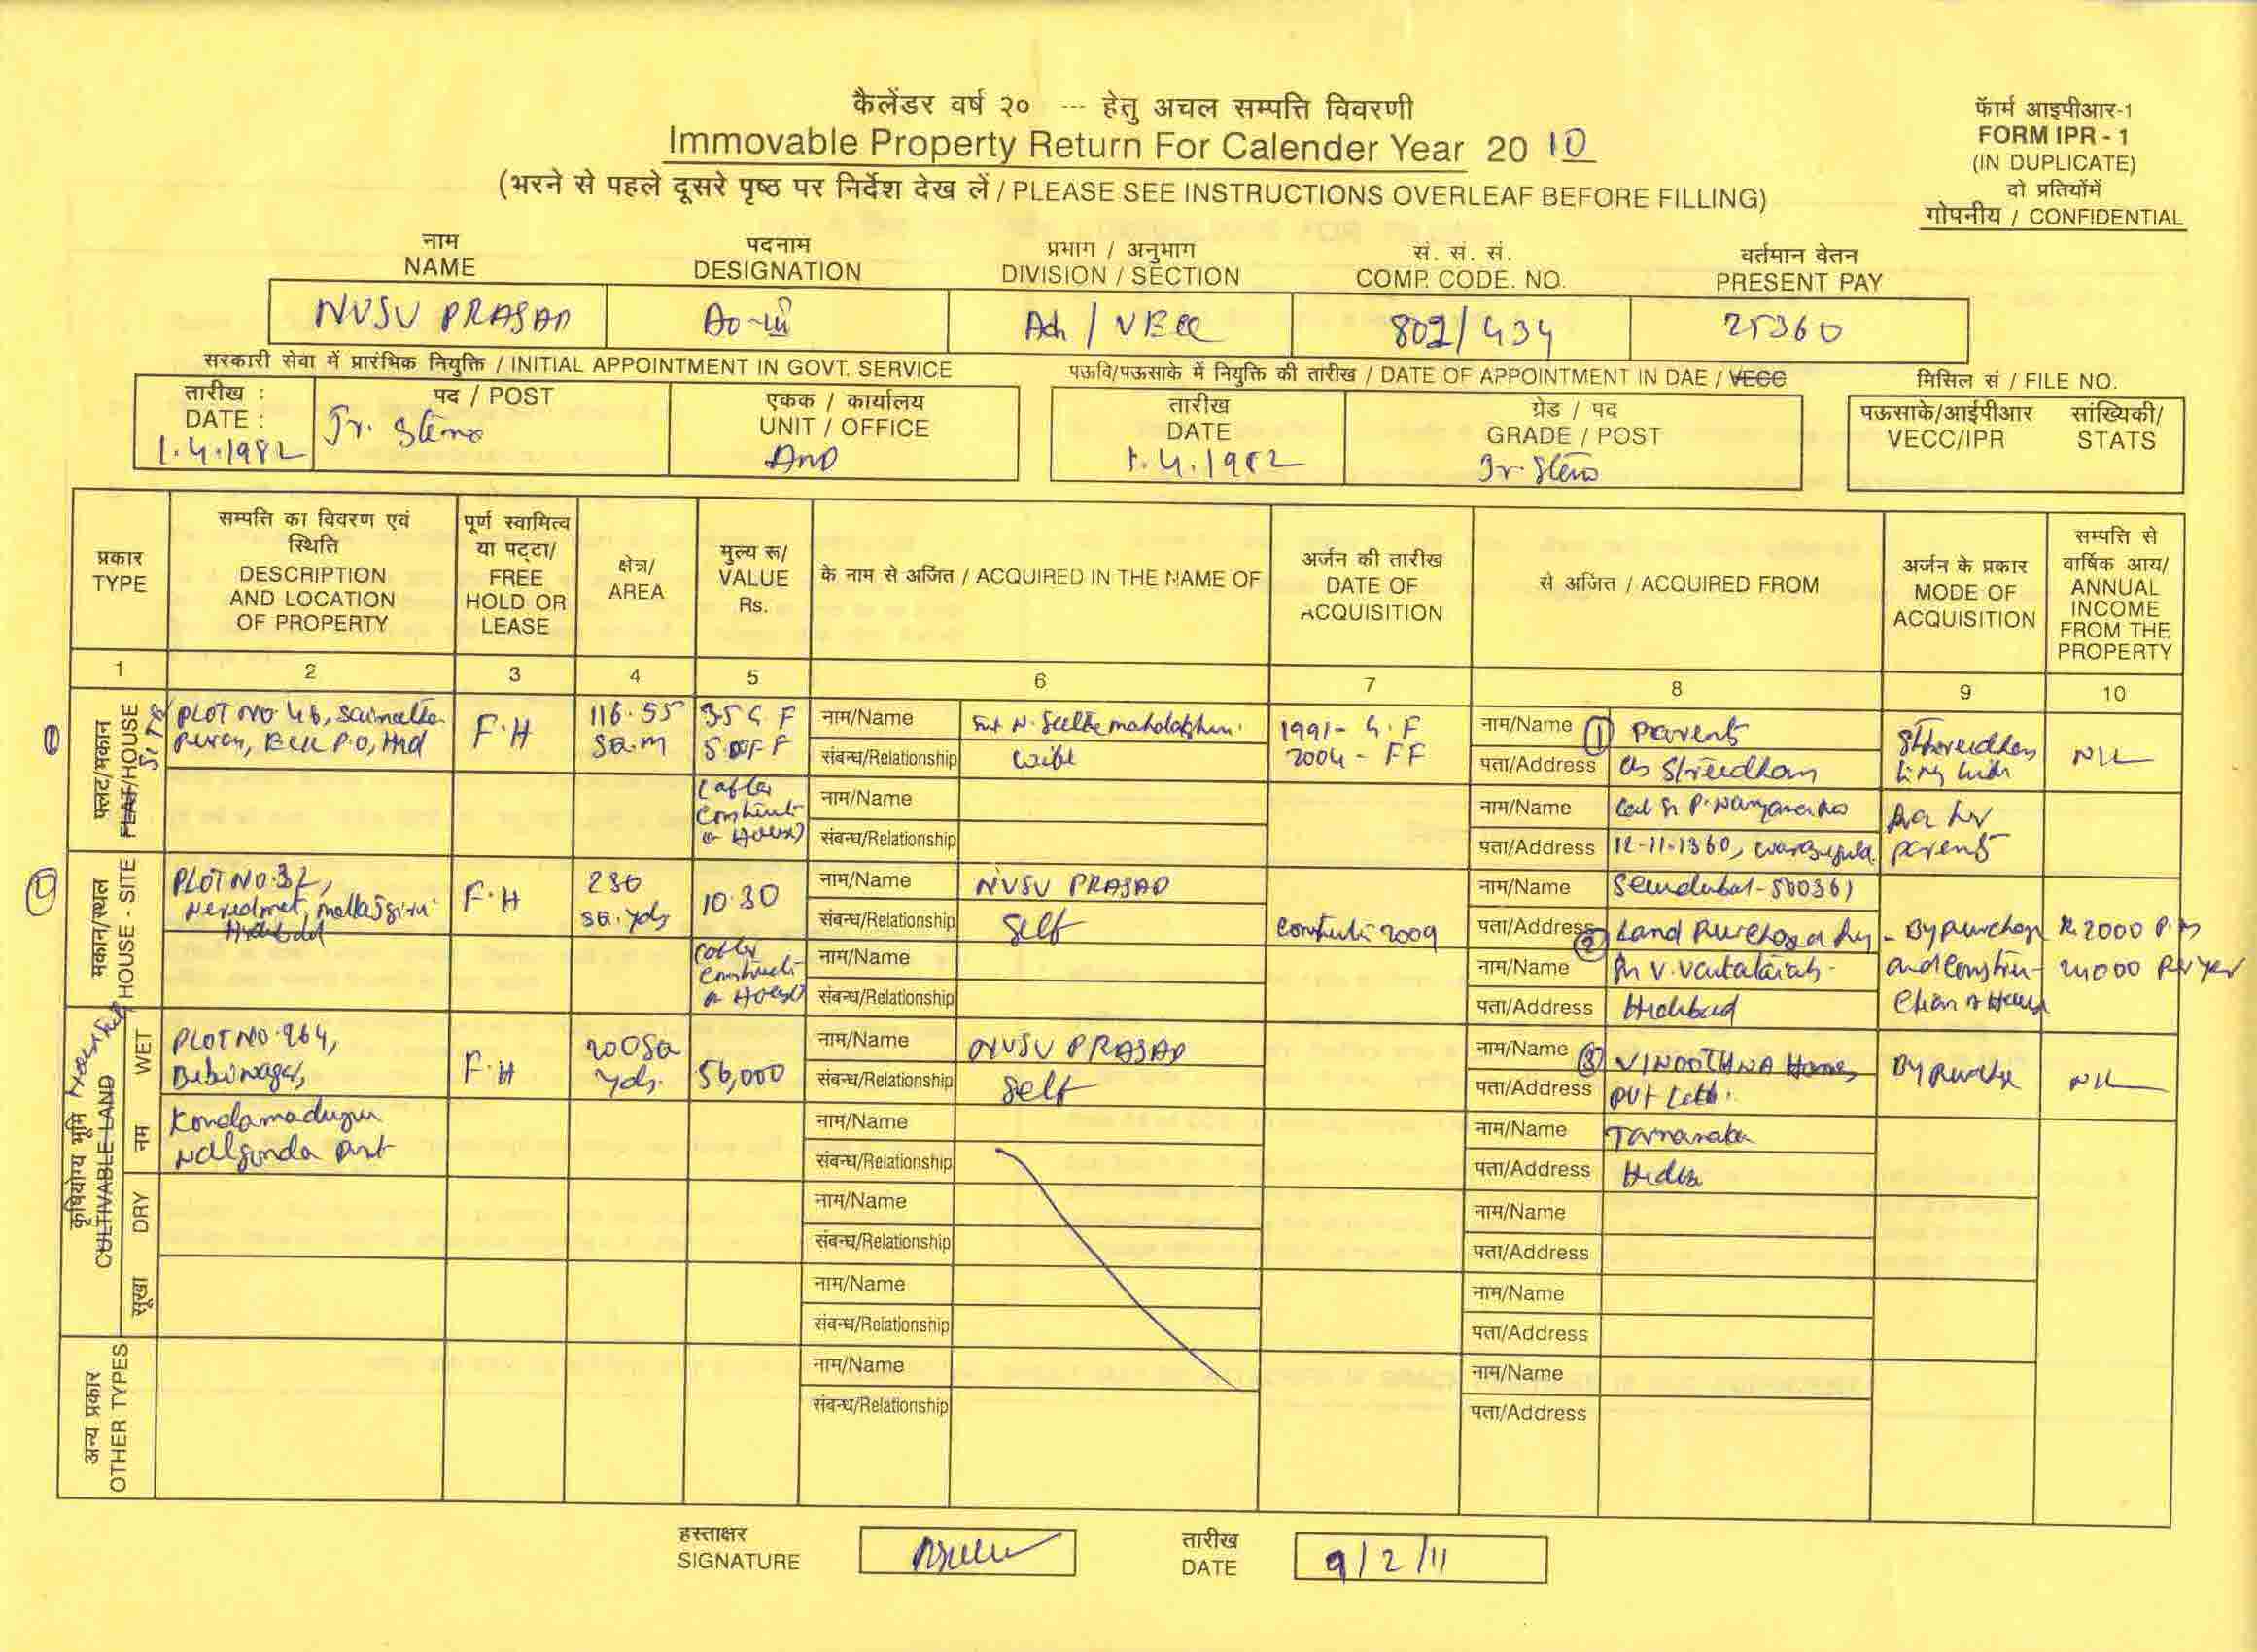 कैलेंडर वर्ष २० --- हेतु अचल सम्पत्ति विवरणी
Immovable Property Return For Calender Year 20 10
(भरने से पहले दूसरे पृष्ठ पर निर्देश देख लें / PLEASE SEE INSTRUCTIONS OVERLEAF BEFORE FILLING)
फॅार्म आइपीआर-1
FORM IPR - 1
(IN DUPLICATE)
दो प्रतियोंमें
गोपनीय / CONFIDENTIAL
नाम पदनाम प्रभाग / अनुभाग सं. सं. सं. वर्तमान वेतन
NAME DESIGNATION DIVISION / SECTION COMP. CODE. NO. PRESENT PAY
NVSU PRASAD AO-III / VECC 802/434 25360
सरकारी सेवा में प्रारंभिक नियुक्ति / INITIAL APPOINTMENT IN GOVT. SERVICE
पऊवि/पऊसाके में नियुक्ति की तारीख / DATE OF APPOINTMENT IN DAE / VECC
मिसिल सं / FILE NO.
तारीख : पद / POST एकक / कार्यालय तारीख ग्रेड / पद पऊसाके/आईपीआर सांख्यिकी/
DATE : UNIT / OFFICE DATE GRADE / POST VECC/IPR STATS
1.4.1982 Jr. Steno 1.4.1982 Jr. Steno
प्रकार
TYPE
सम्पत्ति का विवरण एवं
स्थिति
DESCRIPTION
AND LOCATION
OF PROPERTY
पूर्ण स्वामित्व
या पट्टा/
FREE
HOLD OR
LEASE
क्षेत्र/
AREA
मुल्य रू/
VALUE
Rs.
के नाम से अर्जित / ACQUIRED IN THE NAME OF
अर्जन की तारीख
DATE OF
ACQUISITION
से अर्जित / ACQUIRED FROM
अर्जन के प्रकार
MODE OF
ACQUISITION
सम्पत्ति से
वार्षिक आय/
ANNUAL
INCOME
FROM THE
PROPERTY
1 2 3 4 5 6 7 8 9 10
फ्लट/मकान
FLAT/HOUSE
PLOT NO 46,
F.H
116.55
SQ.M
नाम/Name
संबन्ध/Relationship wife
1991- G.F
2004 - FF
नाम/Name (1) Parents
पता/Address as Streedhan
NIL
(after
नाम/Name
संबन्ध/Relationship
नाम/Name
पता/Address 12-11-1360,
parents
मकान/स्थल
HOUSE - SITE
PLOT NO.32,
Neredmet,
F.H
230
SQ. Yds
10.30
नाम/Name NVSU PRASAD
संबन्ध/Relationship Self
2009
नाम/Name
पता/Address (2) Land
Rs 2000 P.m
(after
नाम/Name
संबन्ध/Relationship
नाम/Name
पता/Address
24000 per year
कृषियोग्य भूमि
CULTIVABLE LAND
नम WET
PLOT NO.264,
Bibinagar,
F.H
200 SQ
Yds.
56,000
नाम/Name NVSU PRASAD
संबन्ध/Relationship Self
नाम/Name (3) VINOOTHNA Homes
पता/Address PVT
By purchase
NIL
Kondamadugu
Nalgonda Dist
नाम/Name
संबन्ध/Relationship
नाम/Name Tarnaka
पता/Address
सूखा DRY
नाम/Name
संबन्ध/Relationship
नाम/Name
पता/Address
नाम/Name
संबन्ध/Relationship
नाम/Name
पता/Address
अन्य प्रकार
OTHER TYPES
नाम/Name
संबन्ध/Relationship
नाम/Name
पता/Address
हस्ताक्षर
SIGNATURE
तारीख
DATE
9/2/11